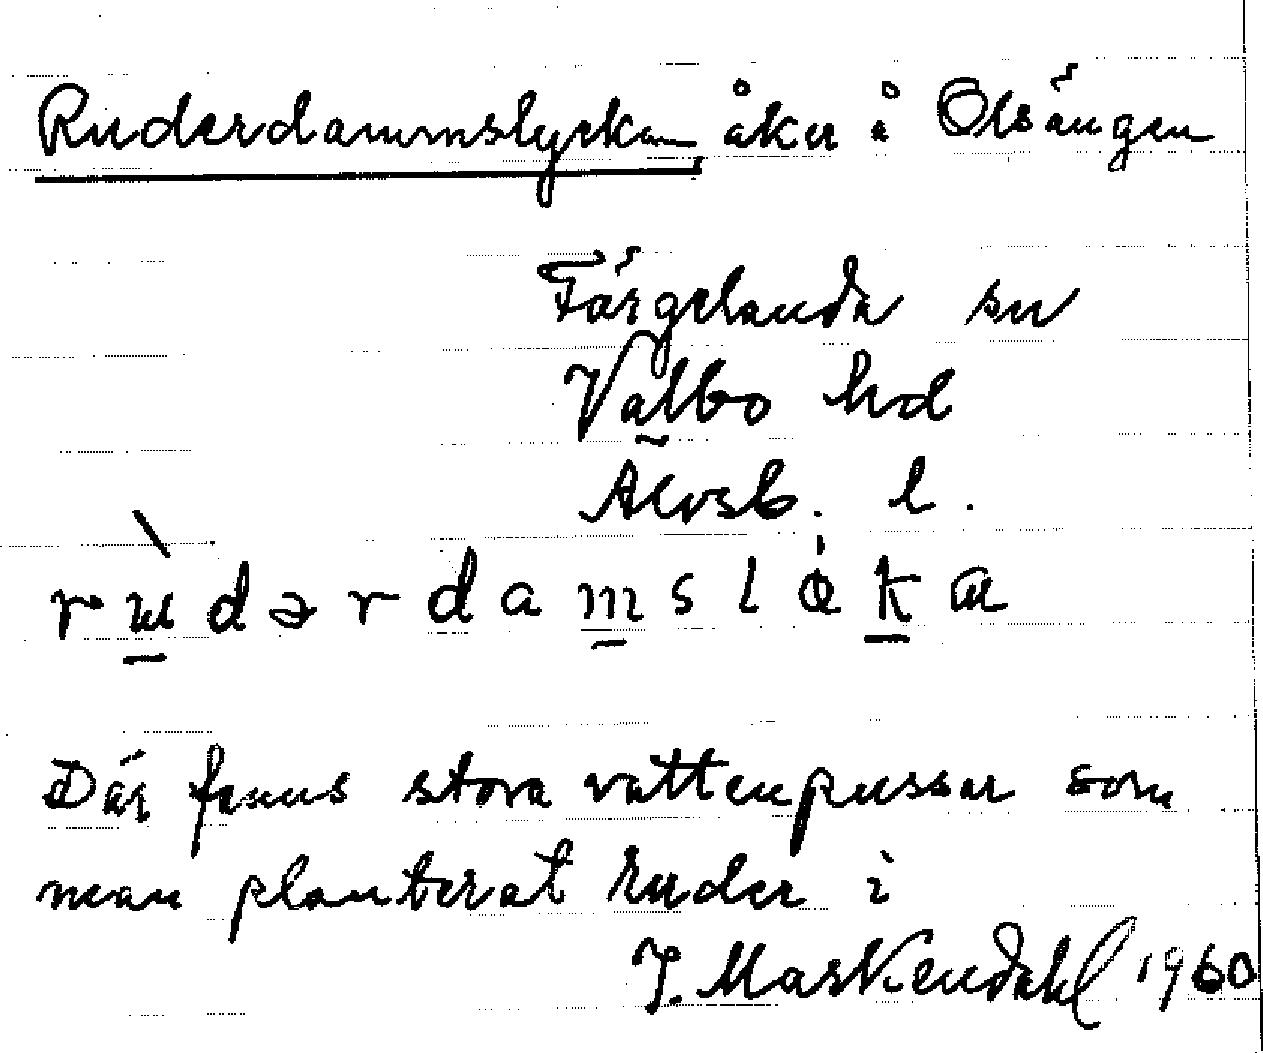 Ruderdammslyckan, åker å Olsängen
Färgelanda sn
Valbo hd
Älvsb. l.
Där finns stora vattenpussar som
man planterat ruder i
J. Markendahl 1960